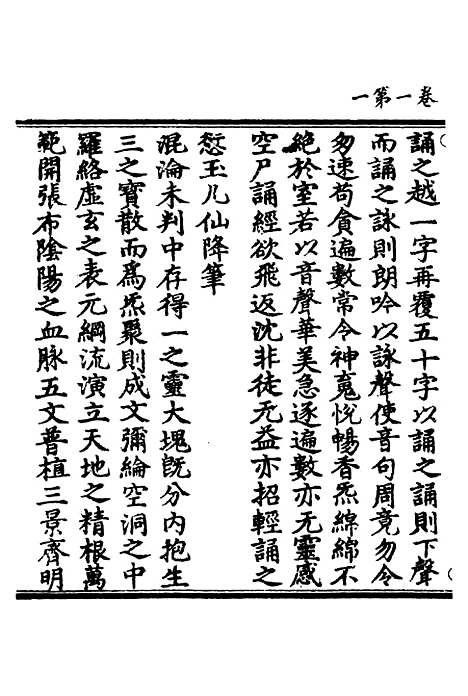 卷一第一
誦之越一字再覆五十字以誦之誦則下聲
而誦之詠則朗吟以詠聲使音句周竟勿令
匆速苟貪遍數常令神䰟悅暢香炁綿綿不
絶於室若以音聲華美急逐遍數亦无靈感
空尸誦經欲飛返沈非徒无益亦招輕誦之
愆玉几仙降筆
混淪未判中存得一之靈大塊旣分内抱生
三之寶散而爲炁聚則成文彌綸空洞之中
羅絡虛玄之表元綱流演立天地之精根萬
範開張布隂陽之血脉五文普植三景齊明